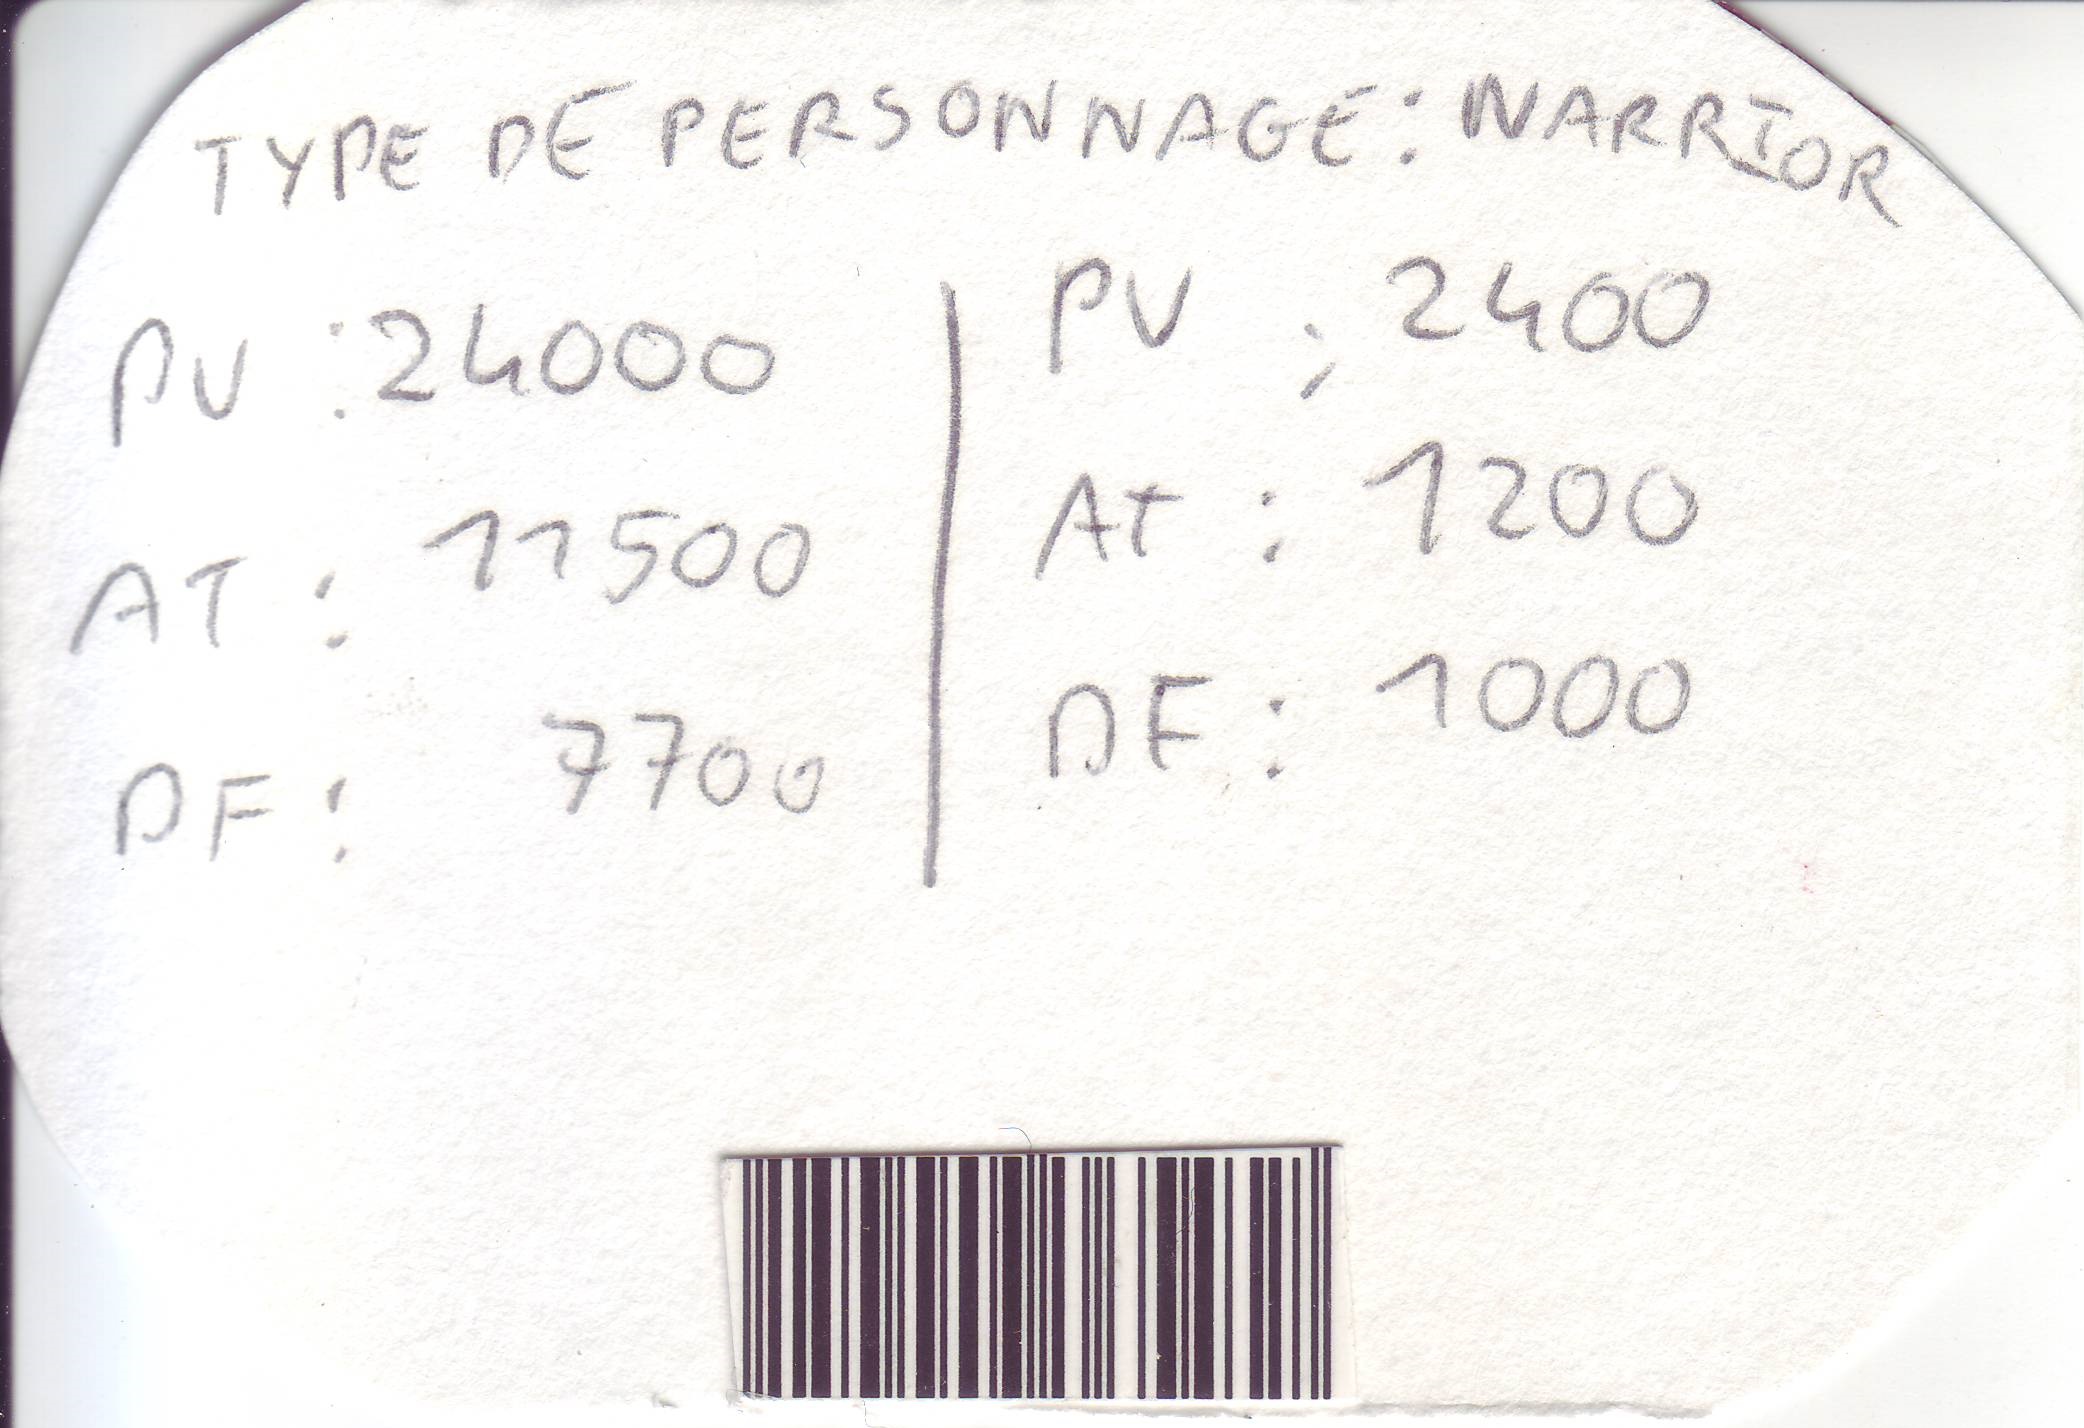 TYPE DE PERSONNAGE: WARRIOR
PV : 24000
AT : 11500
DF : 7700
PV : 2400
AT : 1200
DF : 1000